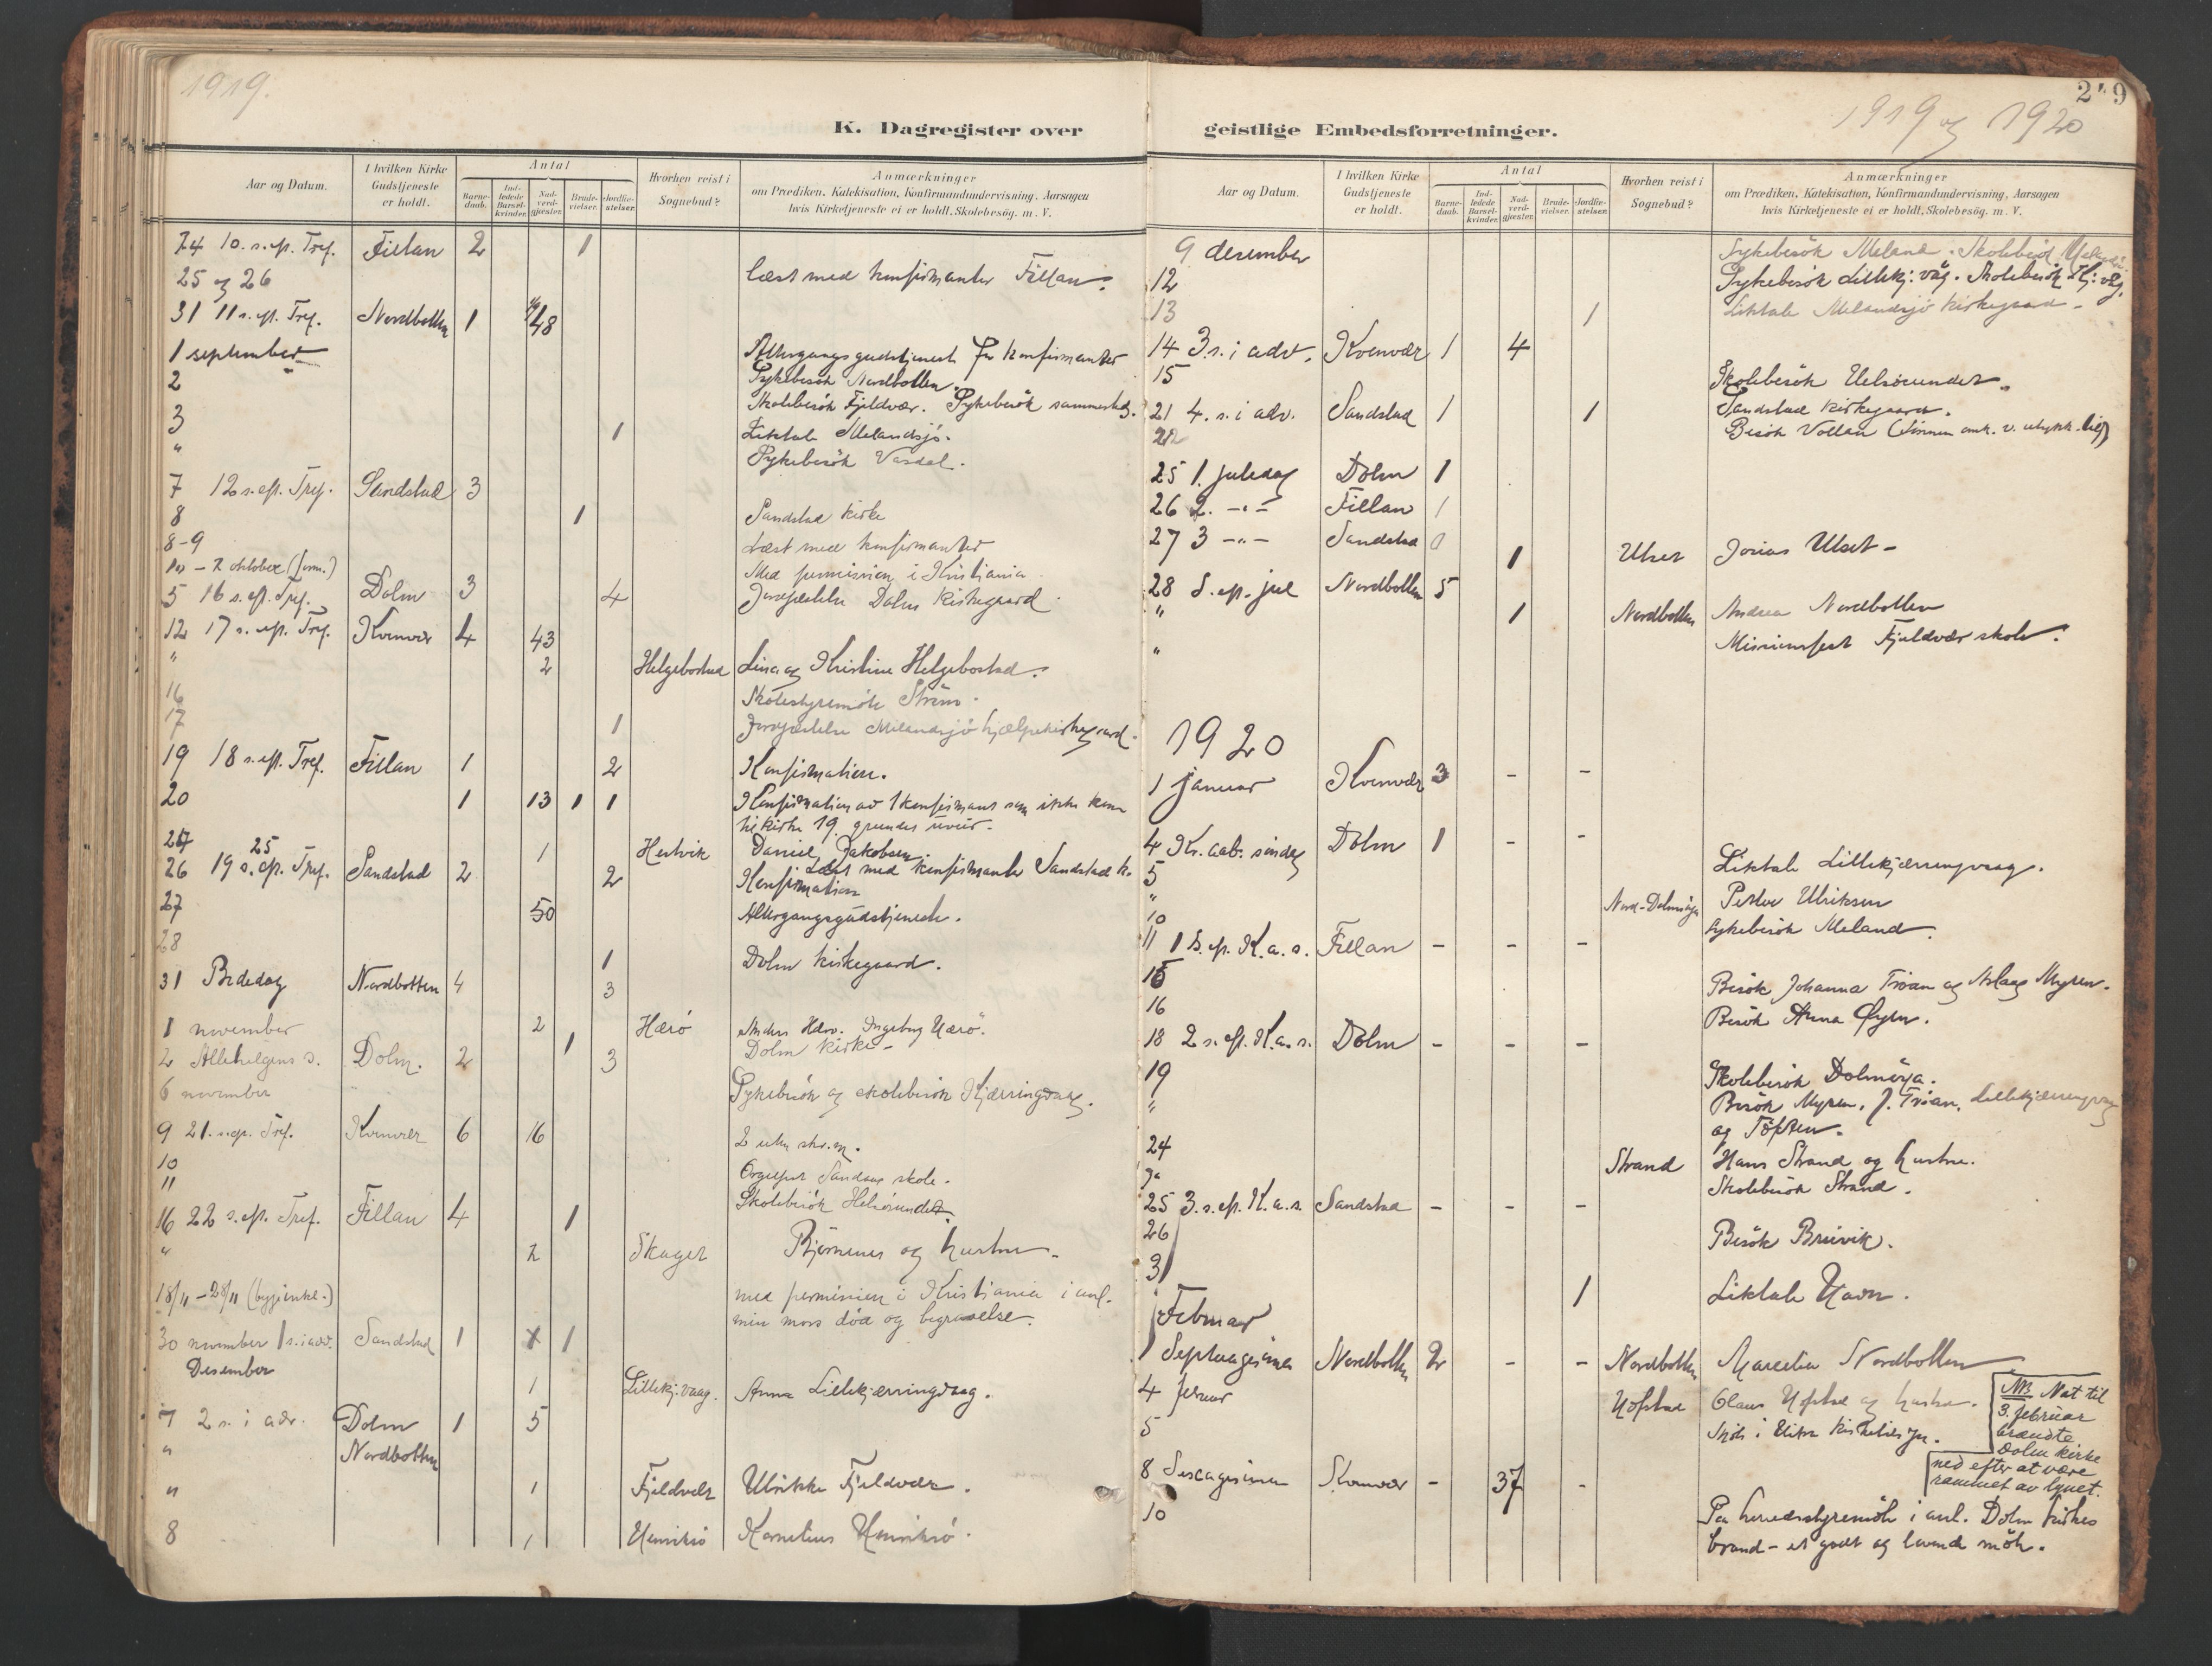 1919.
K. Dagregister over
Aar og Datum.
I hvilken Kirke Gudstjeneste er holdt.
Antal
Barne-daab.
Ind-ledede Barsel-kvinder.
Nad-verd-gjester.
Brude-vielser.
Jordfæ-stelser.
Hvorhen reist i Sognebud?
Anmærkninger
om Prædiken, Katekisation, Konfirmandundervisning, Aarsagen
hvis Kirketjeneste ei er holdt, Skolebesög. m. V.
24 10. s. ef. Tref. Fillan 2 1
25 og 26 læst med konfirmanter Fillan.
31 11 s. ef. Tref. Nordbotten 1 48
1 september Altergangsgudstjeneste for konfirmanter
2 Sykebesök Nordbotten.
3 Skolebesök Fjeldvær. Sykebesök sammesteds.
" 1 Liktale Melandsjö.
Sykebesök Vasdal.
7 12 s. ef. Tref. Sandstad 3
8 1 Sandstad kirke
8-9 Læst med konfirmanter
10 - 2 oktober (form.) Med permission i Kristiania.
5 16 s. ef. Tref. Dolm 3 4 Jordfæstelse Dolm kirkegaard
12 17 s. ef. Tref. Kvenvær 4 43
" 2 Helgebostad Lina og Kristine Helgebostad.
16 Skolestyremöte Ström.
17 1 Jordfæstelse Melandsjö hjælpekirkegaard.
19 18 s. ef. Tref. Fillan 1 2 Konfirmation.
20 1 13 1 1 Konfirmation av 1 konfirmant som ikke kom
til kirke 19. grundet uveir.
1 Hestvik Daniel Jakobsen.
25 Læst med konfirmanter Sandstad k.
26 19 s. ef. Tref. Sandstad 2 2 Konfirmation
27 50 Altergangsgudstjeneste.
28 1 Dolm kirkegaard.
31 Bededag Nordbotten 4 3
1 november 2 Hærö Anders Hærö. Ingeborg Hærö.
1 Dolm kirke
2 Allehelgens s. Dolm. 2 3
6 november Sykebesök og skolebesök Kjærringvaag.
9 21. s. ep. Tref. Kvenvær 6 16 2 uten skr.m.
10 Orgelfest Sandvag skole.
11 Skolebesök Helsösundet.
16 22 s. ef. Tref. Fillan 4 1
" 2 Skaget Björnenes og hustru.
18/11 - 28/11 med permission i Kristiania i anl.
min mors död og begravelse.
30 november 1 s. i adv. Sandstad 1 1
Desember
1 Lillekj.vaag. Anna Lillekjærringvaag.
7 2 s. i adv. Dolm 1 5
" Nordbotten
" 1 Fjeldvær Ulrikke Fjeldvær.
8 1 Henriksö Kornelius Henriksö.
249
1919 og 1920
geistlige Embedsforretninger.
Aar og Datum.
I hvilken Kirke Gudstjeneste er holdt.
Antal
Barne-daab.
Ind-ledede Barsel-kvinder.
Nad-verd-gjester.
Brude-vielser.
Jordfæ-stelser.
Hvorhen reist i Sognebud?
Anmærkninger
om Prædiken, Katekisation, Konfirmandundervisning, Aarsagen
hvis Kirketjeneste ei er holdt, Skolebesög. m. V.
9 desember Sykebesök Meland. Skolebesök
12 Sykebesök Lillekj:våg. Skolebesök
13 1 Liktale Melandsjö kirkegaard
14 3. s. i adv. Kvenvær 1 4
15 Skolebesök Helsösundet.
21 4. s. i adv. Sandstad 1 1 Sandstad kirkegaard.
22 Besök Vollan
25 1. juledag Dolm 1
26 2. -"- Fillan 1
27 3 -"- Sandstad 1 Ulset Josias Ulset
28 S. ep. jul Nordbotten 5
" 1 Nordbotten Andrea Nordbotten
" Missionsfest Fjeldvær skole.
1920
1 januar Kvenvær 3 - -
4 Kr. aab. söndag Dolm 1 - -
5 Liktale Lillekjærringvaag.
" Nord-Dolmöya Petter Ulriksen
10 Sykebesök Meland.
11 1 S. ep. K. a. s. Fillan - - -
15 Besök Johanna Troan og Aslaug Myren.
16 Besök Anna Öyen.
18 2 s. ef. K. a. s. Dolm - - -
19 Skolebesök Dolmöya.
" Besök Myren, J. Troan, Lillekjærringvaag
og Töften.
24 Strand Hans Strand og hustru.
Skolebesök Strand.
25 3. s. ep. K. a. s. Sandstad - - -
26 Besök Breivik.
31 1 Liktale Havn.
Februar
1 Septuagesima Nordbotten 2 - - Nordbotten Marselie Nordbotten
4 februar Hofstad Olaus Hofstad og hustru.
5 Möte i Hitra
NB Nat til
3. februar
brændte
Dolm kirke
ned efter at være
rammet av lynet.
8 Sexagesima Kvenvær - 37 -
10 Paa herredsstyremöte i anl. Dolm kirkes
brand - et godt og lovende möte.